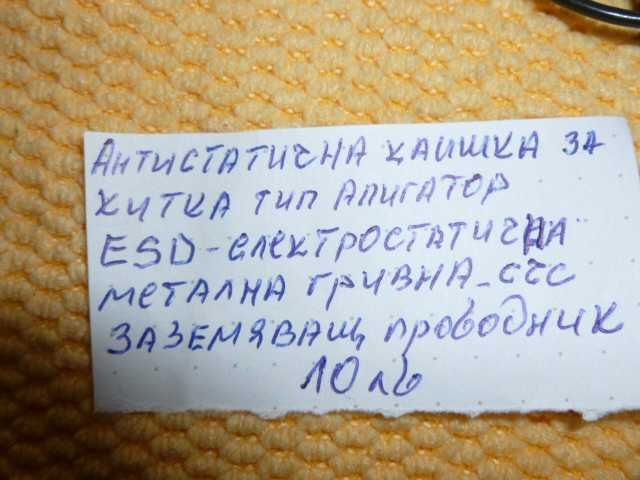 Антистатична каишка за
китка тип Алигатор
ESD-електростатична
метална гривна-със
заземяващ проводник
10 лв